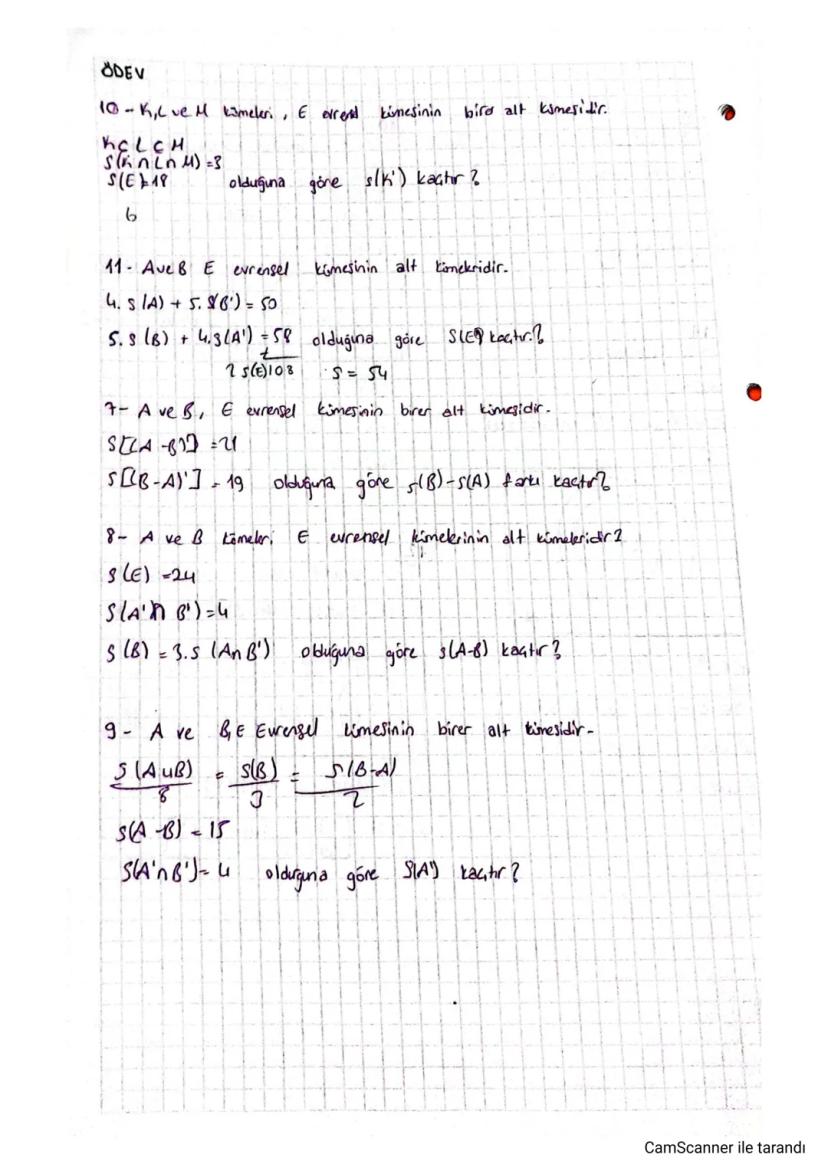 ÖDEV
10 - K, L ve M kümeleri, E evrensel kümesinin birer alt kümesidir.
K ⊂ L ⊂ M
S(K ∩ L ∩ M) = 3
S(E) = 18 olduğuna göre s(K') kaçtır?
6
11 - A ve B E evrensel kümesinin alt kümeleridir.
4. s(A) + 5. s(B') = 50
5. s(B) + 4. s(A') = 58 olduğuna göre S(E) kaçtır?
2 s(E) 108 S = 54
7 - A ve B, E evrensel kümesinin birer alt kümesidir.
S[(A - B)'] = 21
S[(B - A)'] = 19 olduğuna göre s(B) - s(A) farkı kaçtır?
8 - A ve B kümeleri E evrensel kümelerinin alt kümeleridir?
S(E) = 24
S(A' ∩ B') = 4
S(B) = 3. s(A ∩ B') olduğuna göre s(A-B) kaçtır?
9 - A ve B, E Evrensel kümesinin birer alt kümesidir -
S(A ∪ B) / 8 = S(B) / 3 = S(B-A) / 2
S(A - B) = 15
S(A' ∩ B') = 4 olduğuna göre S(A') kaçtır?
CamScanner ile tarandı